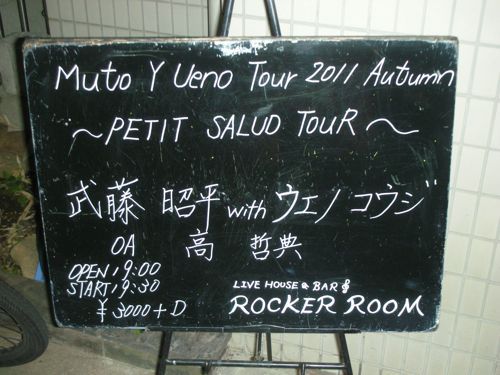 Muto Y Ueno Tour 2011 Autumn
～PETIT SALUD TOUR～
武藤 昭平 with ウエノ コウジ
OA 高 哲典
OPEN 19:00
START 19:30
¥3000+D
LIVE HOUSE & BAR
ROCKER ROOM